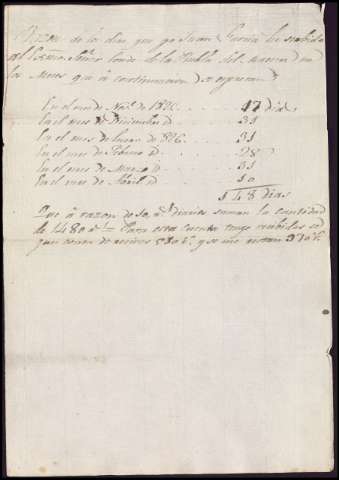 Razon de los dias que yo Juan Garcia he servido
al Exmo. Señor Conde de la Puebla del Maestre en
los Meses que á continuacion se espresan
En el mes de Nove. de 1825. . . . . 17 dias
En el mes de Diciembre id . . . . . 31
En el mes de Enero de 826. . . . . 31
En el mes de Febrero id . . . . . 28
En el mes de Marzo id . . . . . 31
En el mes de Abril id . . . . . 10
148 dias
Que á razon de 10 rs. diarios suman la cantidad
de 1480 rs. = Para esta cuenta tengo recibidos se
gun consta de recivos y se me restan